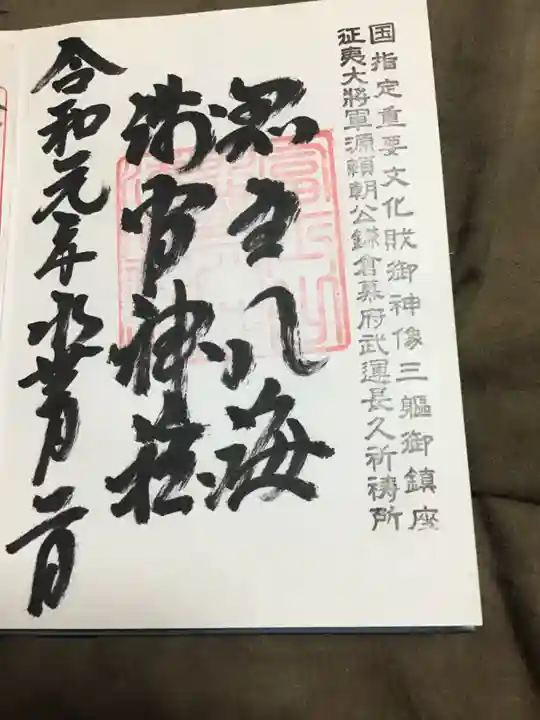 国指定重要文化財御神像三軀御鎮座
征夷大將軍源頼朝公鎌倉幕府武運長久祈祷所
忍野八海
浅間神社
令和元年水無月二日